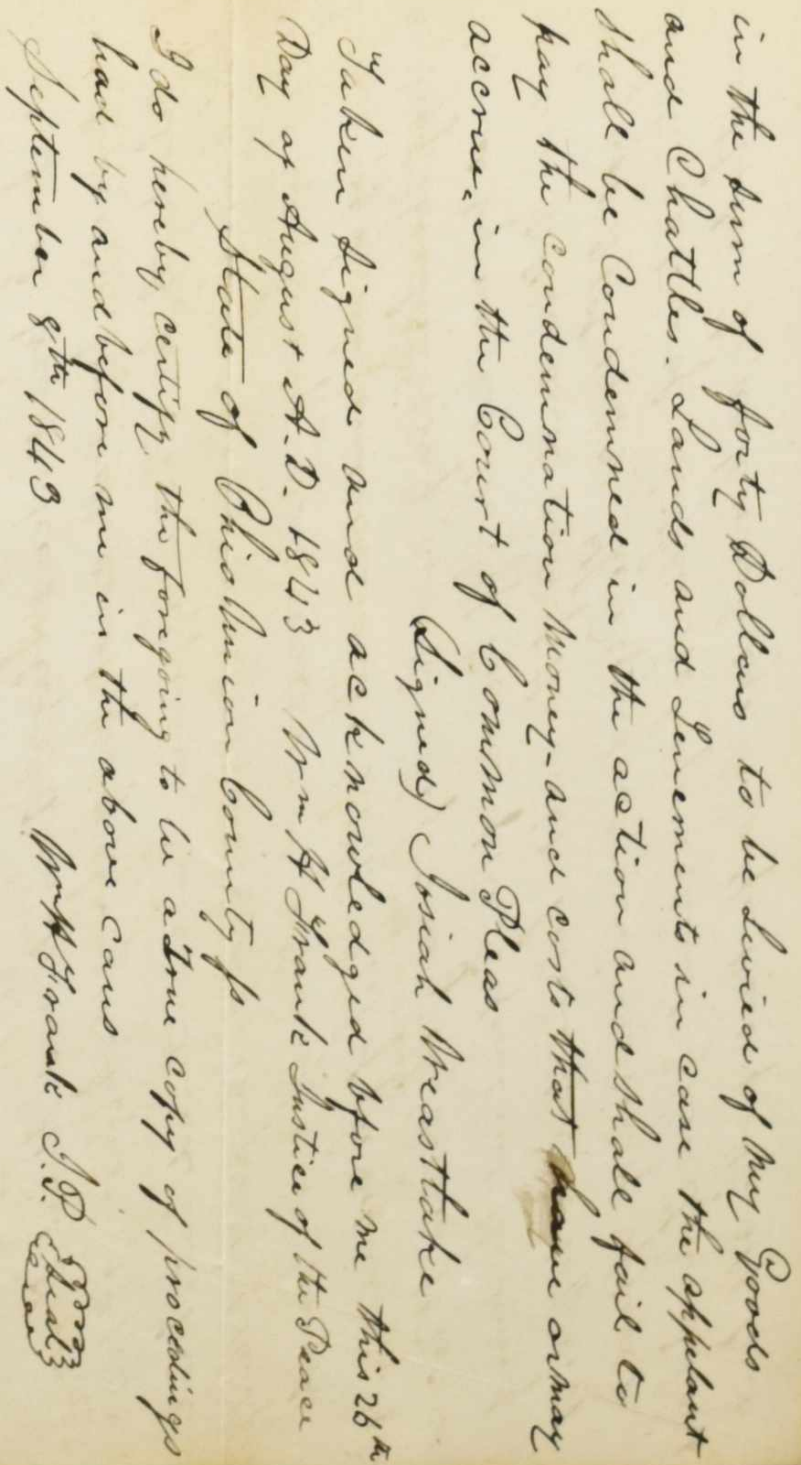 in the sum of forty Dollars to be Levied of my Goods
and Chattles. Lands and Tenements in case the appelant
shall be Condemned in the action and shall fail to
pay the condemnation money - and costs that have or may
accrue. in the Court of Common Pleas
(Signed) Josiah Westlake
Taken Signed and acknowledged before me this 26th
Day of August A.D. 1843 Wm H Frank Justice of the Peace
State of Ohio Union County ss
I do hereby certify the foregoing to be a True copy of proceedings
had by and before me in the above caus
September 8th 1843
Wm H Frank J.P. Seal